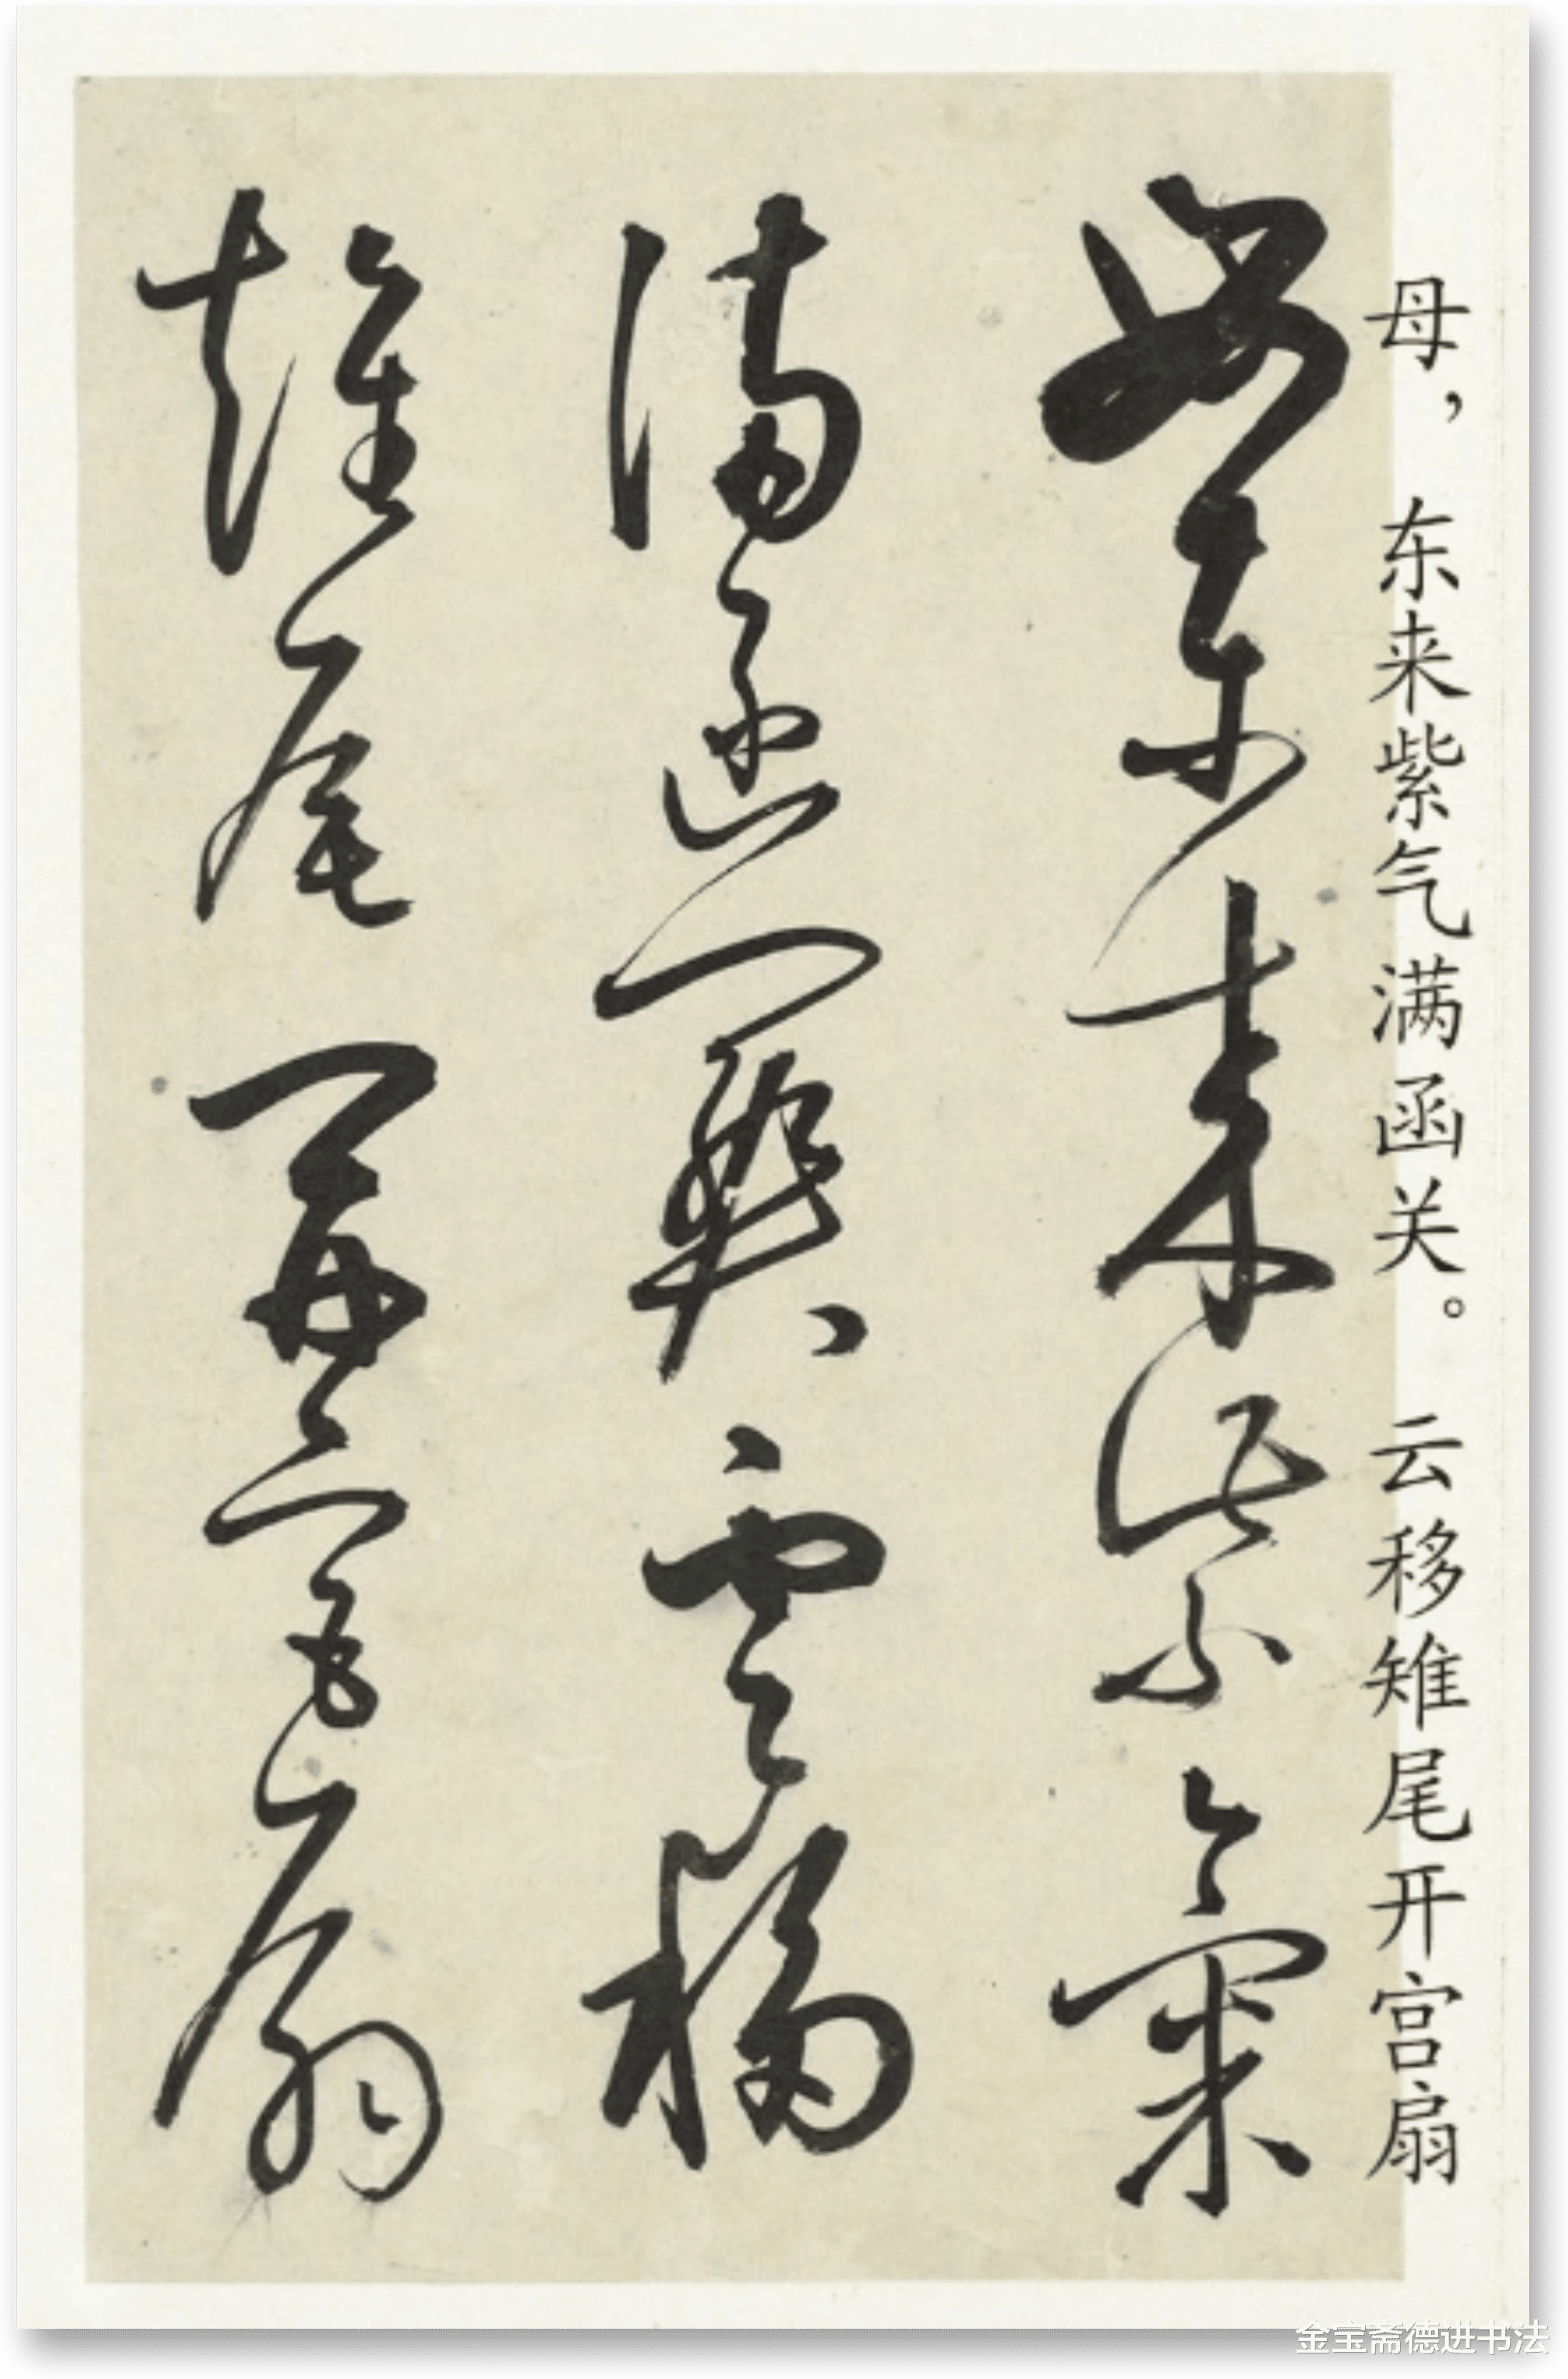 母，东来紫气满函关。云移雉尾开宫扇
母東来紫氣
滿函關雲移
雉尾開宮扇
金宝斋德进书法